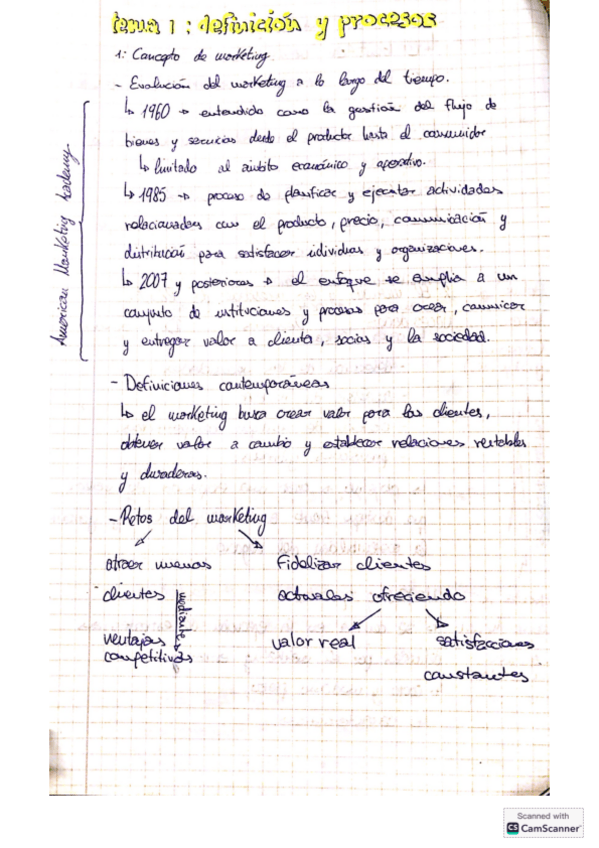 tema 1: definición y procesos
1: Concepto de marketing.
- Evolución del marketing a lo largo del tiempo.
↳ 1960 → entendido como la gestión del flujo de
bienes y servicios desde el productor hasta el consumidor
↳ limitado al ámbito económico y operativo.
↳ 1985 → proceso de planificar y ejecutar actividades
relacionadas con el producto, precio, comunicación y
distribución para satisfacer individuos y organizaciones.
↳ 2007 y posteriores → el enfoque se amplía a un
conjunto de instituciones y procesos para crear, comunicar
y entregar valor a clientes, socios y la sociedad.
American Marketing Academy
- Definiciones contemporáneas
↳ el marketing busca crear valor para los clientes,
obtener valor a cambio y establecer relaciones rentables
y duraderas.
- Retos del marketing
atraer nuevos
clientes
mediante
ventajas
competitivas
Fidelizar clientes
actuales ofreciendo
valor real
satisfacciones
constantes
Scanned with
CS CamScanner